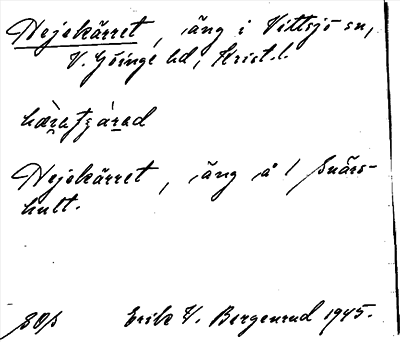 Hejekärret, äng i Vittsjö sn,
V. Göinge hd, Krist. l.
Hejekärret, äng å 1 Snärs-
hult.
Erik V. Bergenrud 1945.